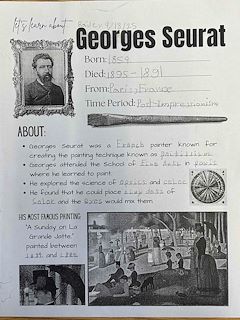 let's learn about
Georges Seurat
Born: 1859
Died: 1895 - 1891
From: Paris, France
Time Period: Post-Impressionism
ABOUT:
Georges Seurat was a French painter known for
creating the painting technique known as pointillism
Georges attended the School of Fine Arts in paris
where he learned to paint.
He explored the science of optics and color
He found that he could place tiny dots of
color and the eyes would mix them.
HIS MOST FAMOUS PAINTING
"A Sunday on La
Grande Jatte."
painted between
and